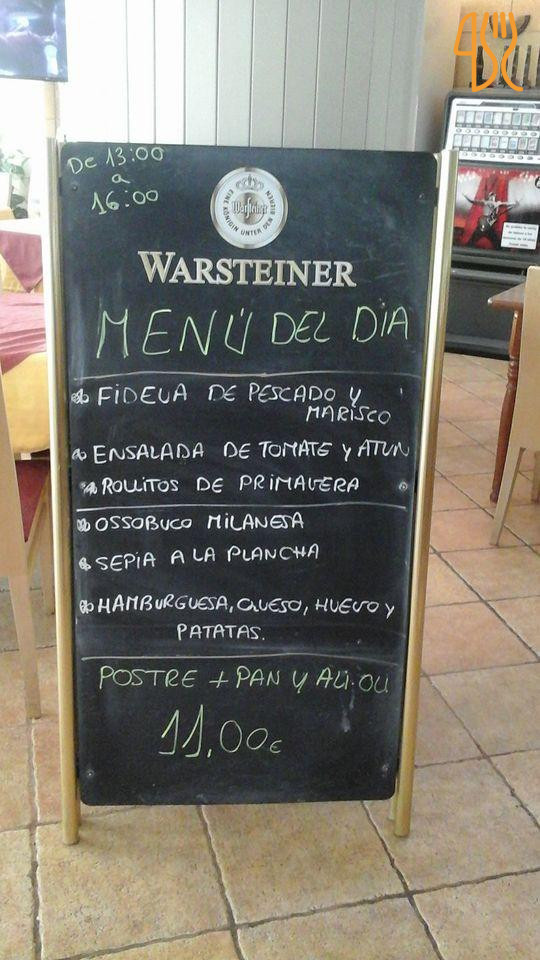 De 13:00
a
16:00
EINE KÖNIGIN UNTER DEN BIEREN
Warsteiner
WARSTEINER
MENÚ DEL DIA
FIDEUA DE PESCADO Y
MARISCO
ENSALADA DE TOMATE Y ATUN
ROLLITOS DE PRIMAVERA
OSSOBUCO MILANESA
SEPIA A LA PLANCHA
HAMBURGUESA, QUESO, HUEVO Y
PATATAS.
POSTRE + PAN Y ALI-OLI
11,00€